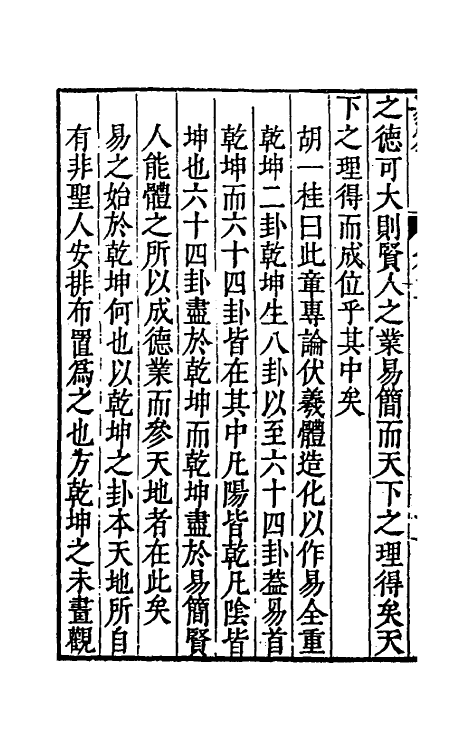 之徳可大則賢人之業易簡而天下之理得矣天
下之理得而成位乎其中矣
胡一桂曰此章專論伏羲體造化以作易全重
乾坤二卦乾坤生八卦以至六十四卦葢易首
乾坤而六十四卦皆在其中凡陽皆乾凡陰皆
坤也六十四卦盡於乾坤而乾坤盡於易簡賢
人能體之所以成德業而參天地者在此矣
易之始於乾坤何也以乾坤之卦本天地所自
有非聖人安排布置為之也方乾坤之未畫觀